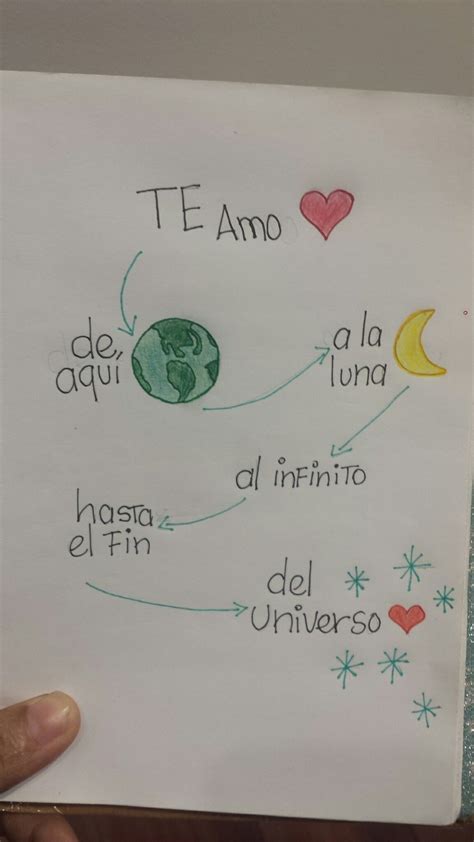 TE Amo
de aquí
a la
luna
al inFiniTo
hasTa
el Fin
del
Universo